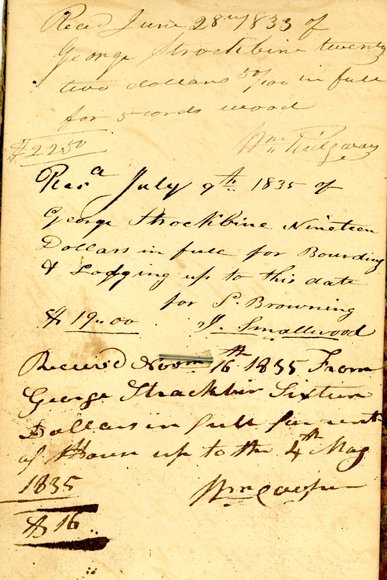 Recd June 28th 1833 of
George Strockbine twenty
two dollars 50/100 in full
for 5 cords wood
$22.50 Wm Ridgway
Recd July 9th 1835 of
George Strockbine Nineteen
Dollars in full for Bourding
& Lodging up to this date
for P. Browning
$ 19.00 J. Smallwood
Received 16th 1835 From
George Strackbin Sixteen
Dollars in full for rent
of House up to the 4th May
1835 Wm Cooper
$ 16